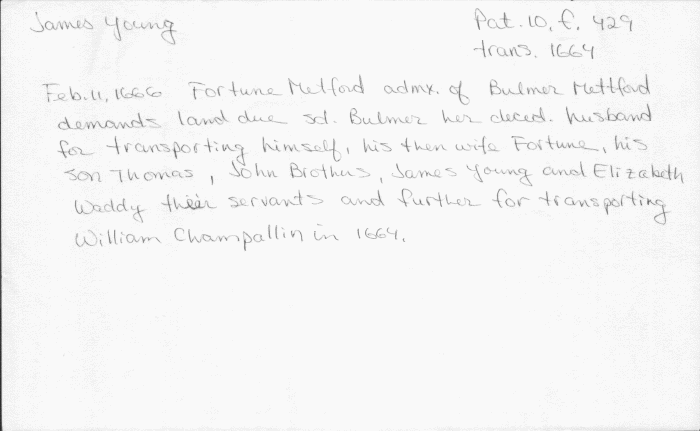 James Young
Pat. 10, f. 429
trans. 1664
Feb. 11, 1666 Fortune Metford admx. of Bulmer Mettford
demands land due sd. Bulmer her deced. husband
for transporting himself, his then wife Fortune, his
son Thomas, John Brothus, James Young and Elizabeth
Waddy their servants and further for transporting
William Champallin in 1664.